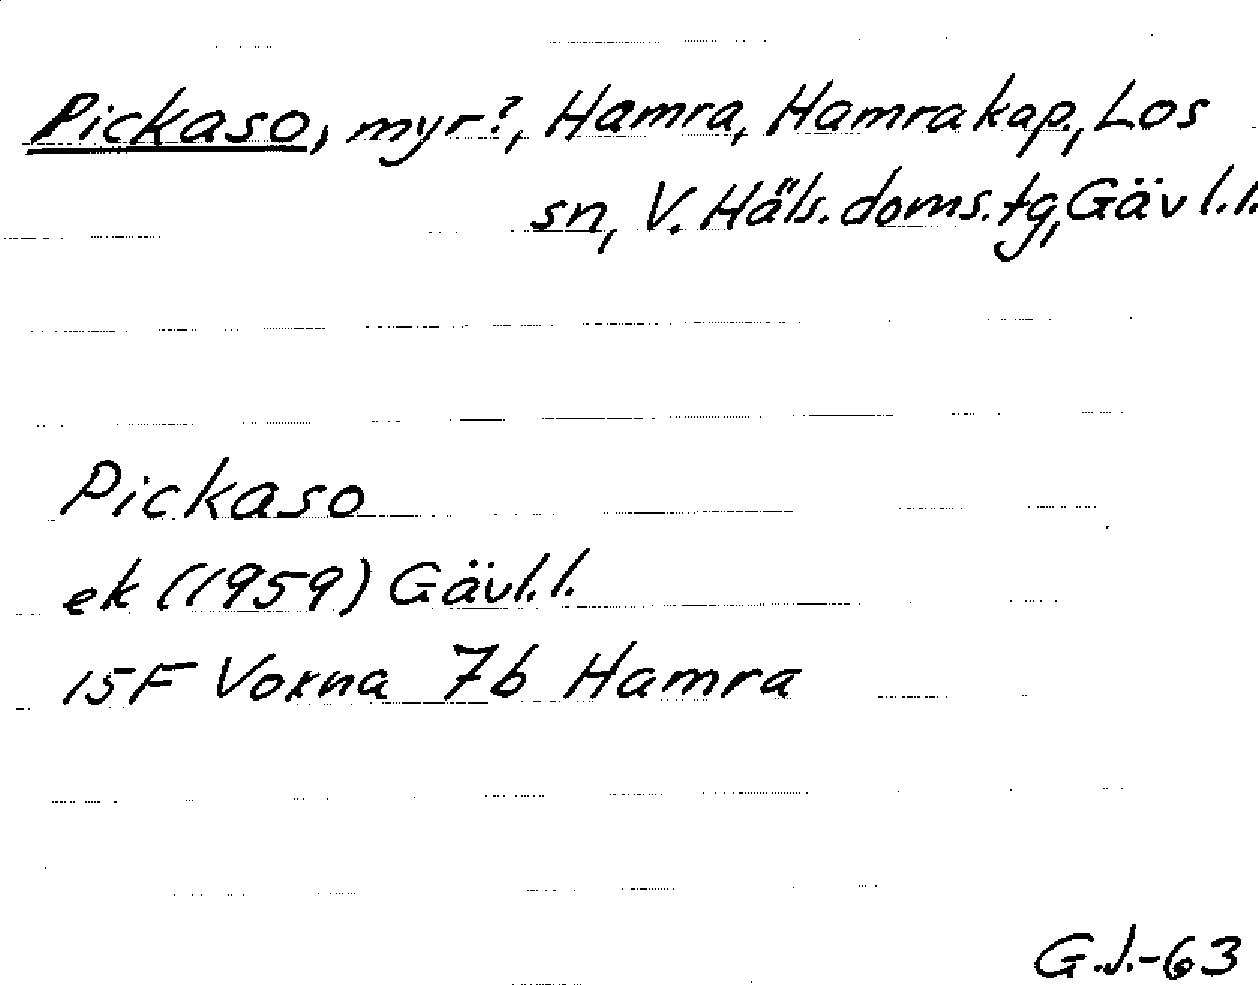 Pickaso, myr?, Hamra, Hamra kap, Los
sn, V. Häls. doms. tg, Gävl. l.
Pickaso
ek (1959) Gävl. l.
15F Voxna 7b Hamra
G.J.-63